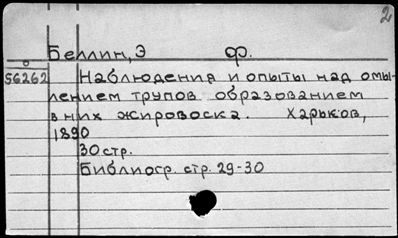 2
Беллин, Э ф.
56262 Наблюдения и опыты над омы-
лением трупов образованием
в них жировоска. Харьков,
1890
30 стр.
Библиогр. стр. 29-30